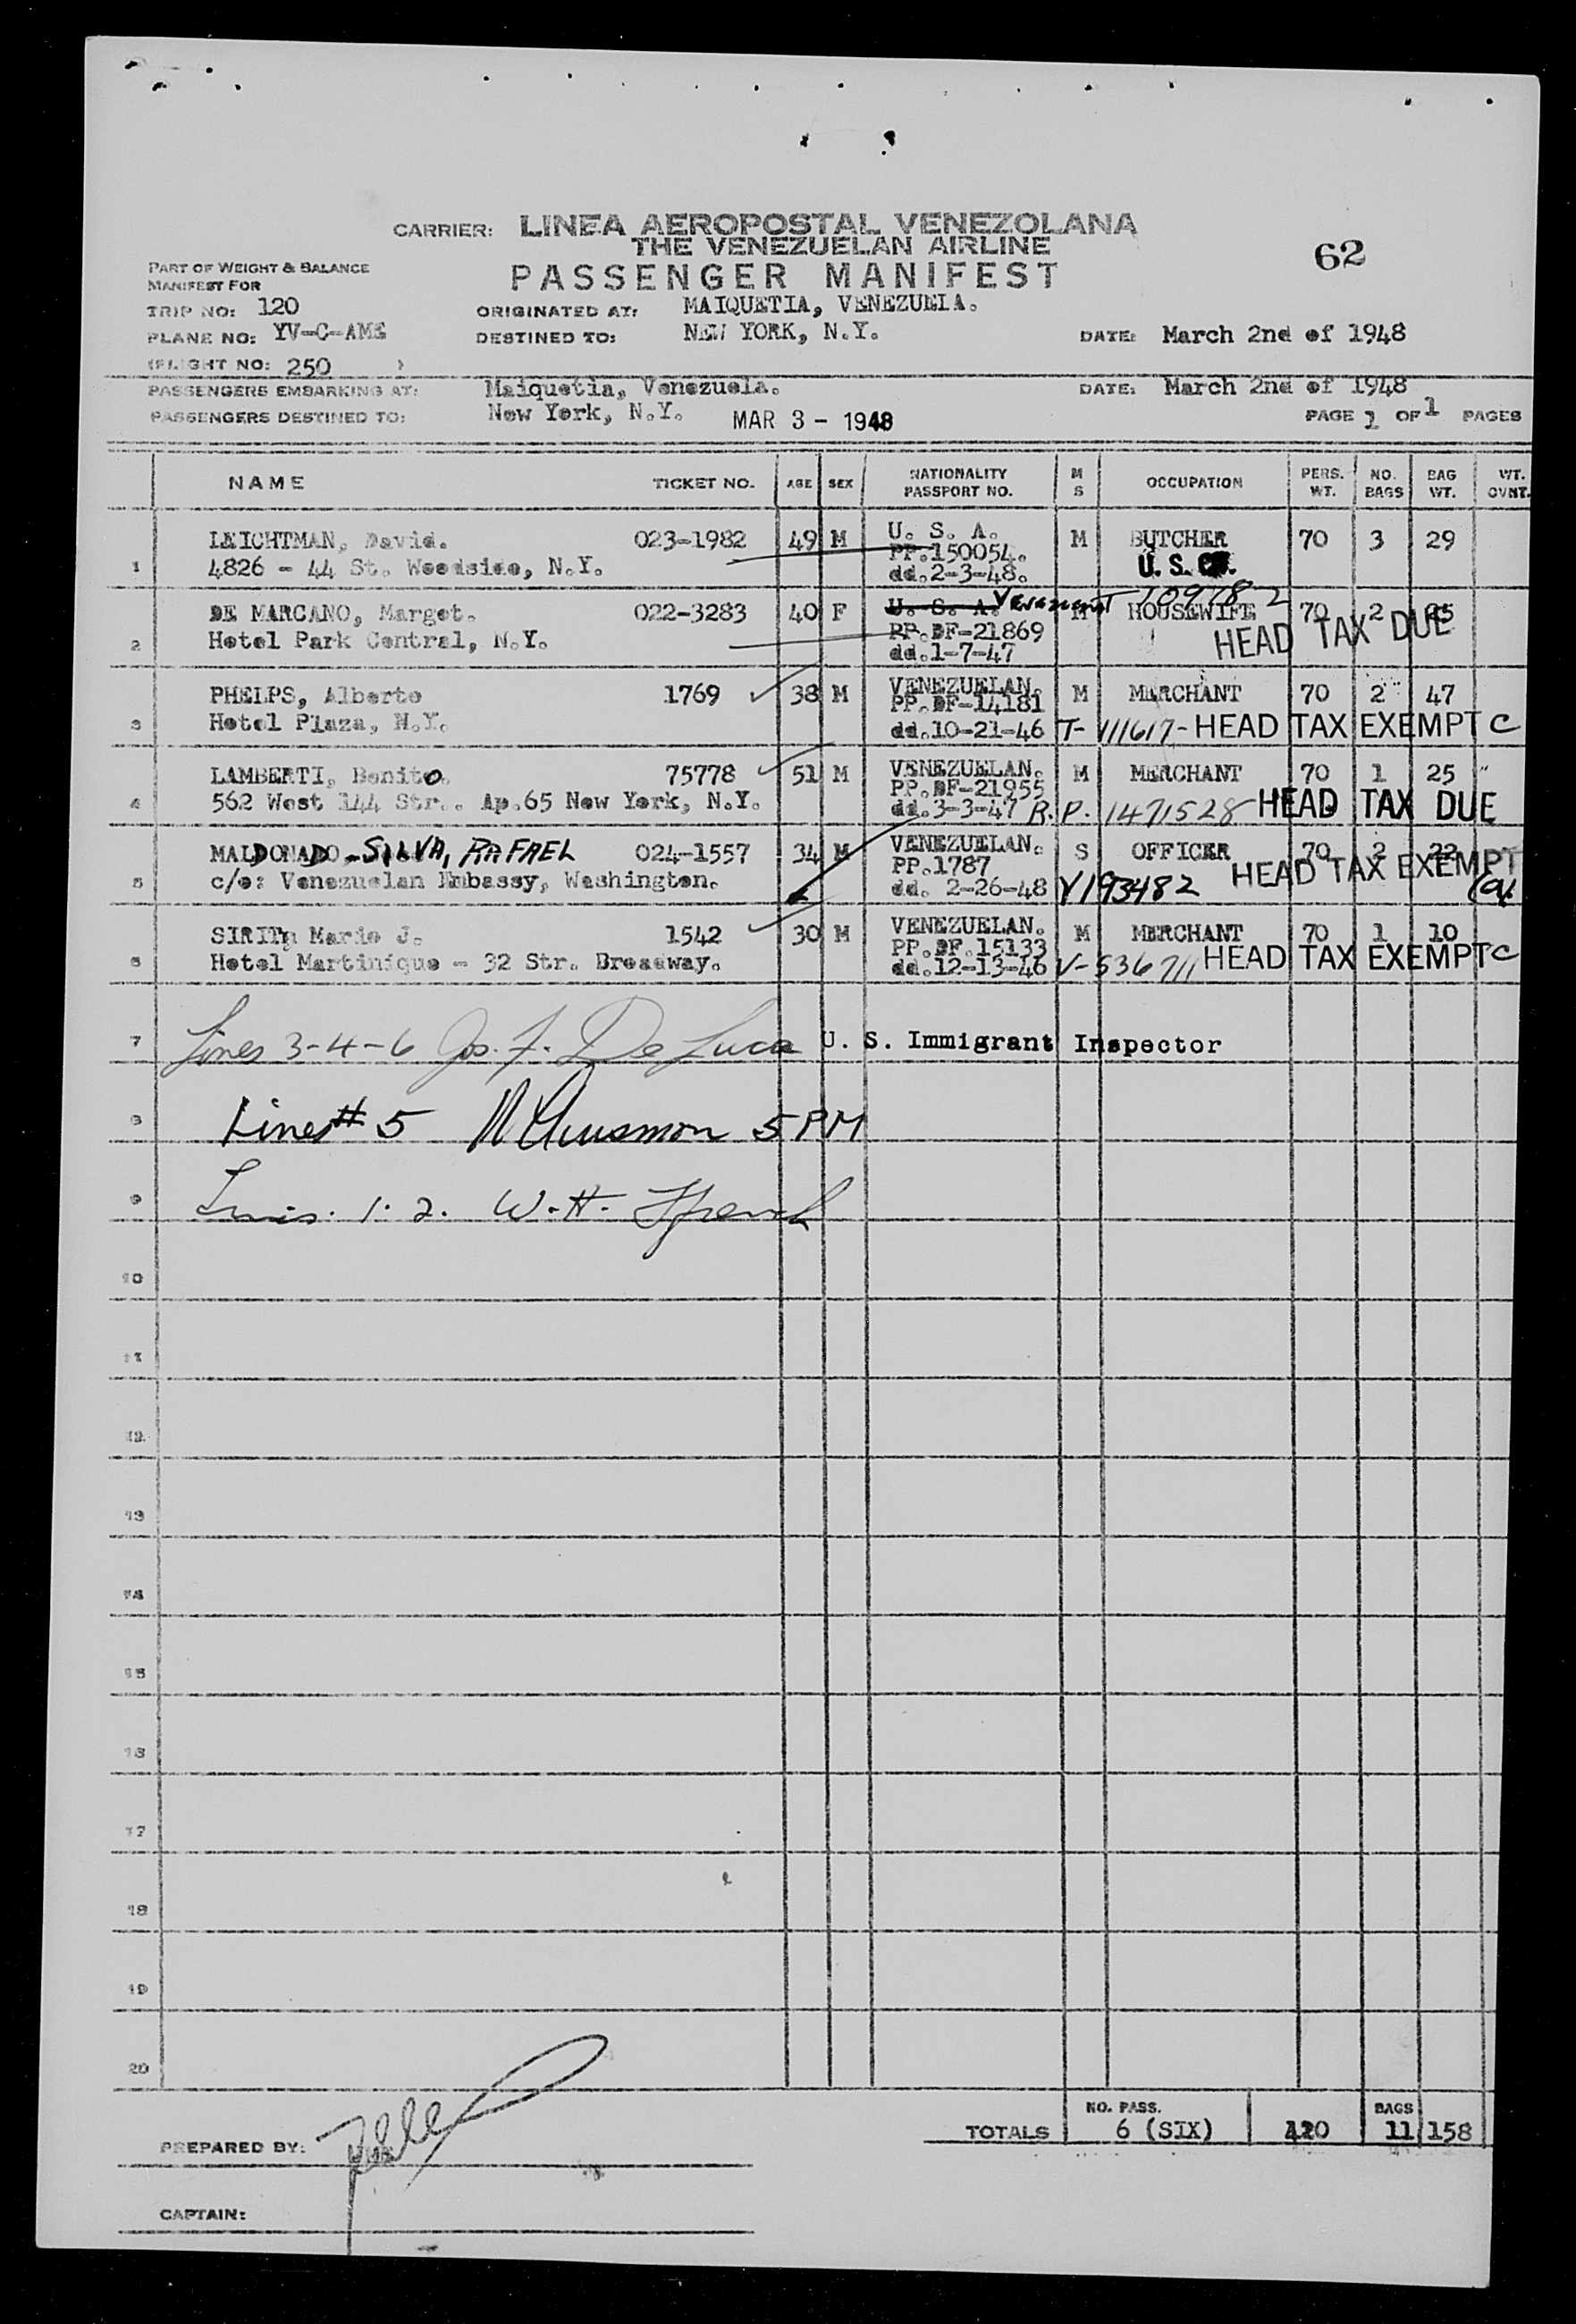 CARRIER: LINEA AEROPOSTAL VENEZOLANA
THE VENEZUELAN AIRLINE
62
PART OF WEIGHT & BALANCE
MANIFEST FOR
PASSENGER MANIFEST
TRIP NO: 120
ORIGINATED AT: MAIQUETIA, VENEZUELA.
PLANE NO: YV-C-AME
DESTINED TO: NEW YORK, N.Y.
DATE: March 2nd of 1948
(FLIGHT NO: 250 )
PASSENGERS EMBARKING AT: Maiquetia, Venezuela. DATE: March 2nd of 1948
PASSENGERS DESTINED TO: New York, N.Y. MAR 3 - 1948 PAGE 1 OF 1 PAGES
NAME TICKET NO. AGE SEX NATIONALITY PASSPORT NO. M S OCCUPATION PERS. WT. NO. BAGS BAG WT. WT. CVNT.
LEICHTMAN, David. 023-1982 49 M U. S. A. M BUTCHER 70 3 29
PP.150054.
1 4826 - 44 St. Woodside, N.Y. dd.2-3-48. U. S. C.
DE MARCANO, Marget. 022-3283 40 F U. S. A. M HOUSEWIFE 70 2 25
PP.DF-21869
2 Hotel Park Central, N.Y. dd.1-7-47 HEAD TAX DUE
PHELPS, Alberto 1769 38 M VENEZUELAN. M MERCHANT 70 2 47
PP.DF-14181
3 Hotel Plaza, N.Y. dd.10-21-46 T-111617- HEAD TAX EXEMPT C
LAMBERTI, Benito. 75778 51 M VENEZUELAN. M MERCHANT 70 1 25
PP.DF-21955
4 562 West 144 Str.. Ap.65 New York, N.Y. dd.3-3-47 R.P. 1471528 HEAD TAX DUE
MALDONADO - SILVA, RAFAEL 024-1557 34 M VENEZUELAN. S OFFICER 70 2 22
PP.1787
5 c/o: Venezuelan Embassy, Washington. dd. 2-26-48 V193482 HEAD TAX EXEMPT
SIRIT, Mario J. 1542 30 M VENEZUELAN. M MERCHANT 70 1 10
PP.DF.15133
6 Hotel Martinique - 32 Str. Broadway. dd.12-13-46 V-536711 HEAD TAX EXEMPT C
7 Lines 3-4-6 Jos. F. De Luca U. S. Immigrant Inspector
8 Line # 5 5 PM
9 Lines 1. 2. W. H.
10
11
12
13
14
15
16
17
18
19
20
NO. PASS. BAGS
TOTALS 6 (SIX) 420 11 158
PREPARED BY:
CAPTAIN: